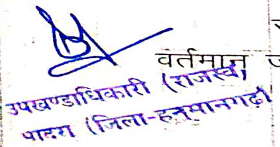 वर्तमान
उपखण्डाधिकारी (राजस्व)
(जिला-हनुमानगढ़)